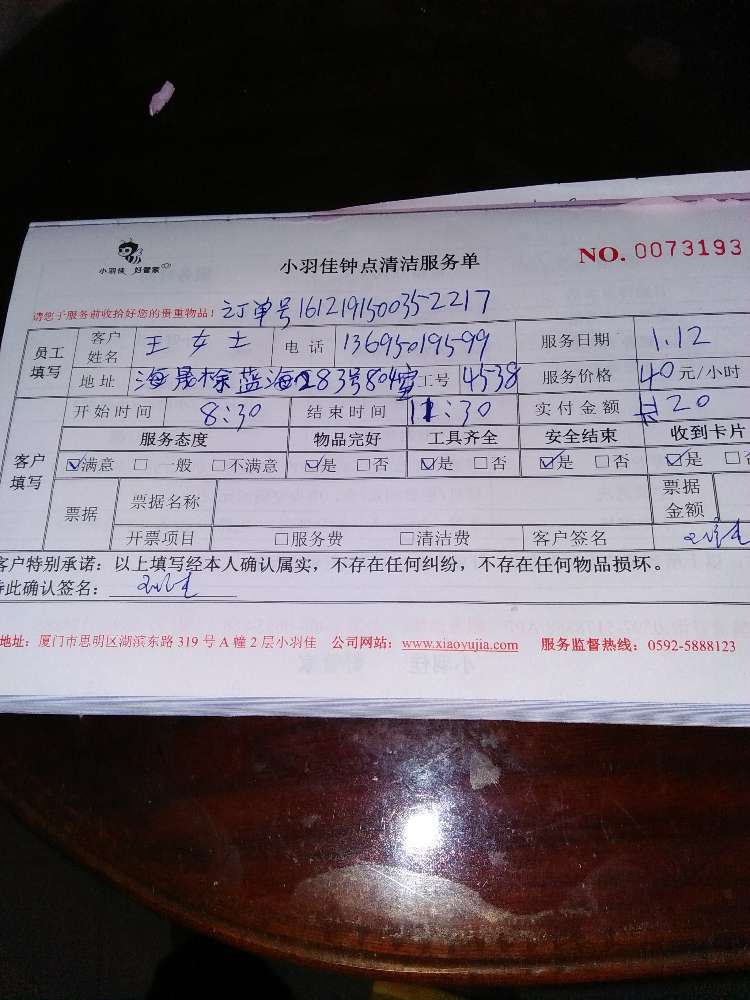 小羽佳 好管家
小羽佳钟点清洁服务单
NO. 0073193
请您于服务前收拾好您的贵重物品! 订单号161219150035 2217
员工填写 客户姓名 王女士 电话 13695019599 服务日期 1.12
地址 海晟棕蓝海283号804室 工号 4538 服务价格 40元/小时
客户填写 开始时间 8:30 结束时间 11:30 实付金额 20
服务态度 物品完好 工具齐全 安全结束 收到卡片
☑满意 □一般 □不满意 ☑是 □否 ☑是 □否 ☑是 □否 ☑是 □
票据 票据名称 票据金额
开票项目 □服务费 □清洁费 客户签名
客户特别承诺：以上填写经本人确认属实，不存在任何纠纷，不存在任何物品损坏。
特此确认签名：
地址：厦门市思明区湖滨东路 319 号 A 幢 2 层小羽佳 公司网站：www.xiaoyujia.com 服务监督热线：0592-5888123